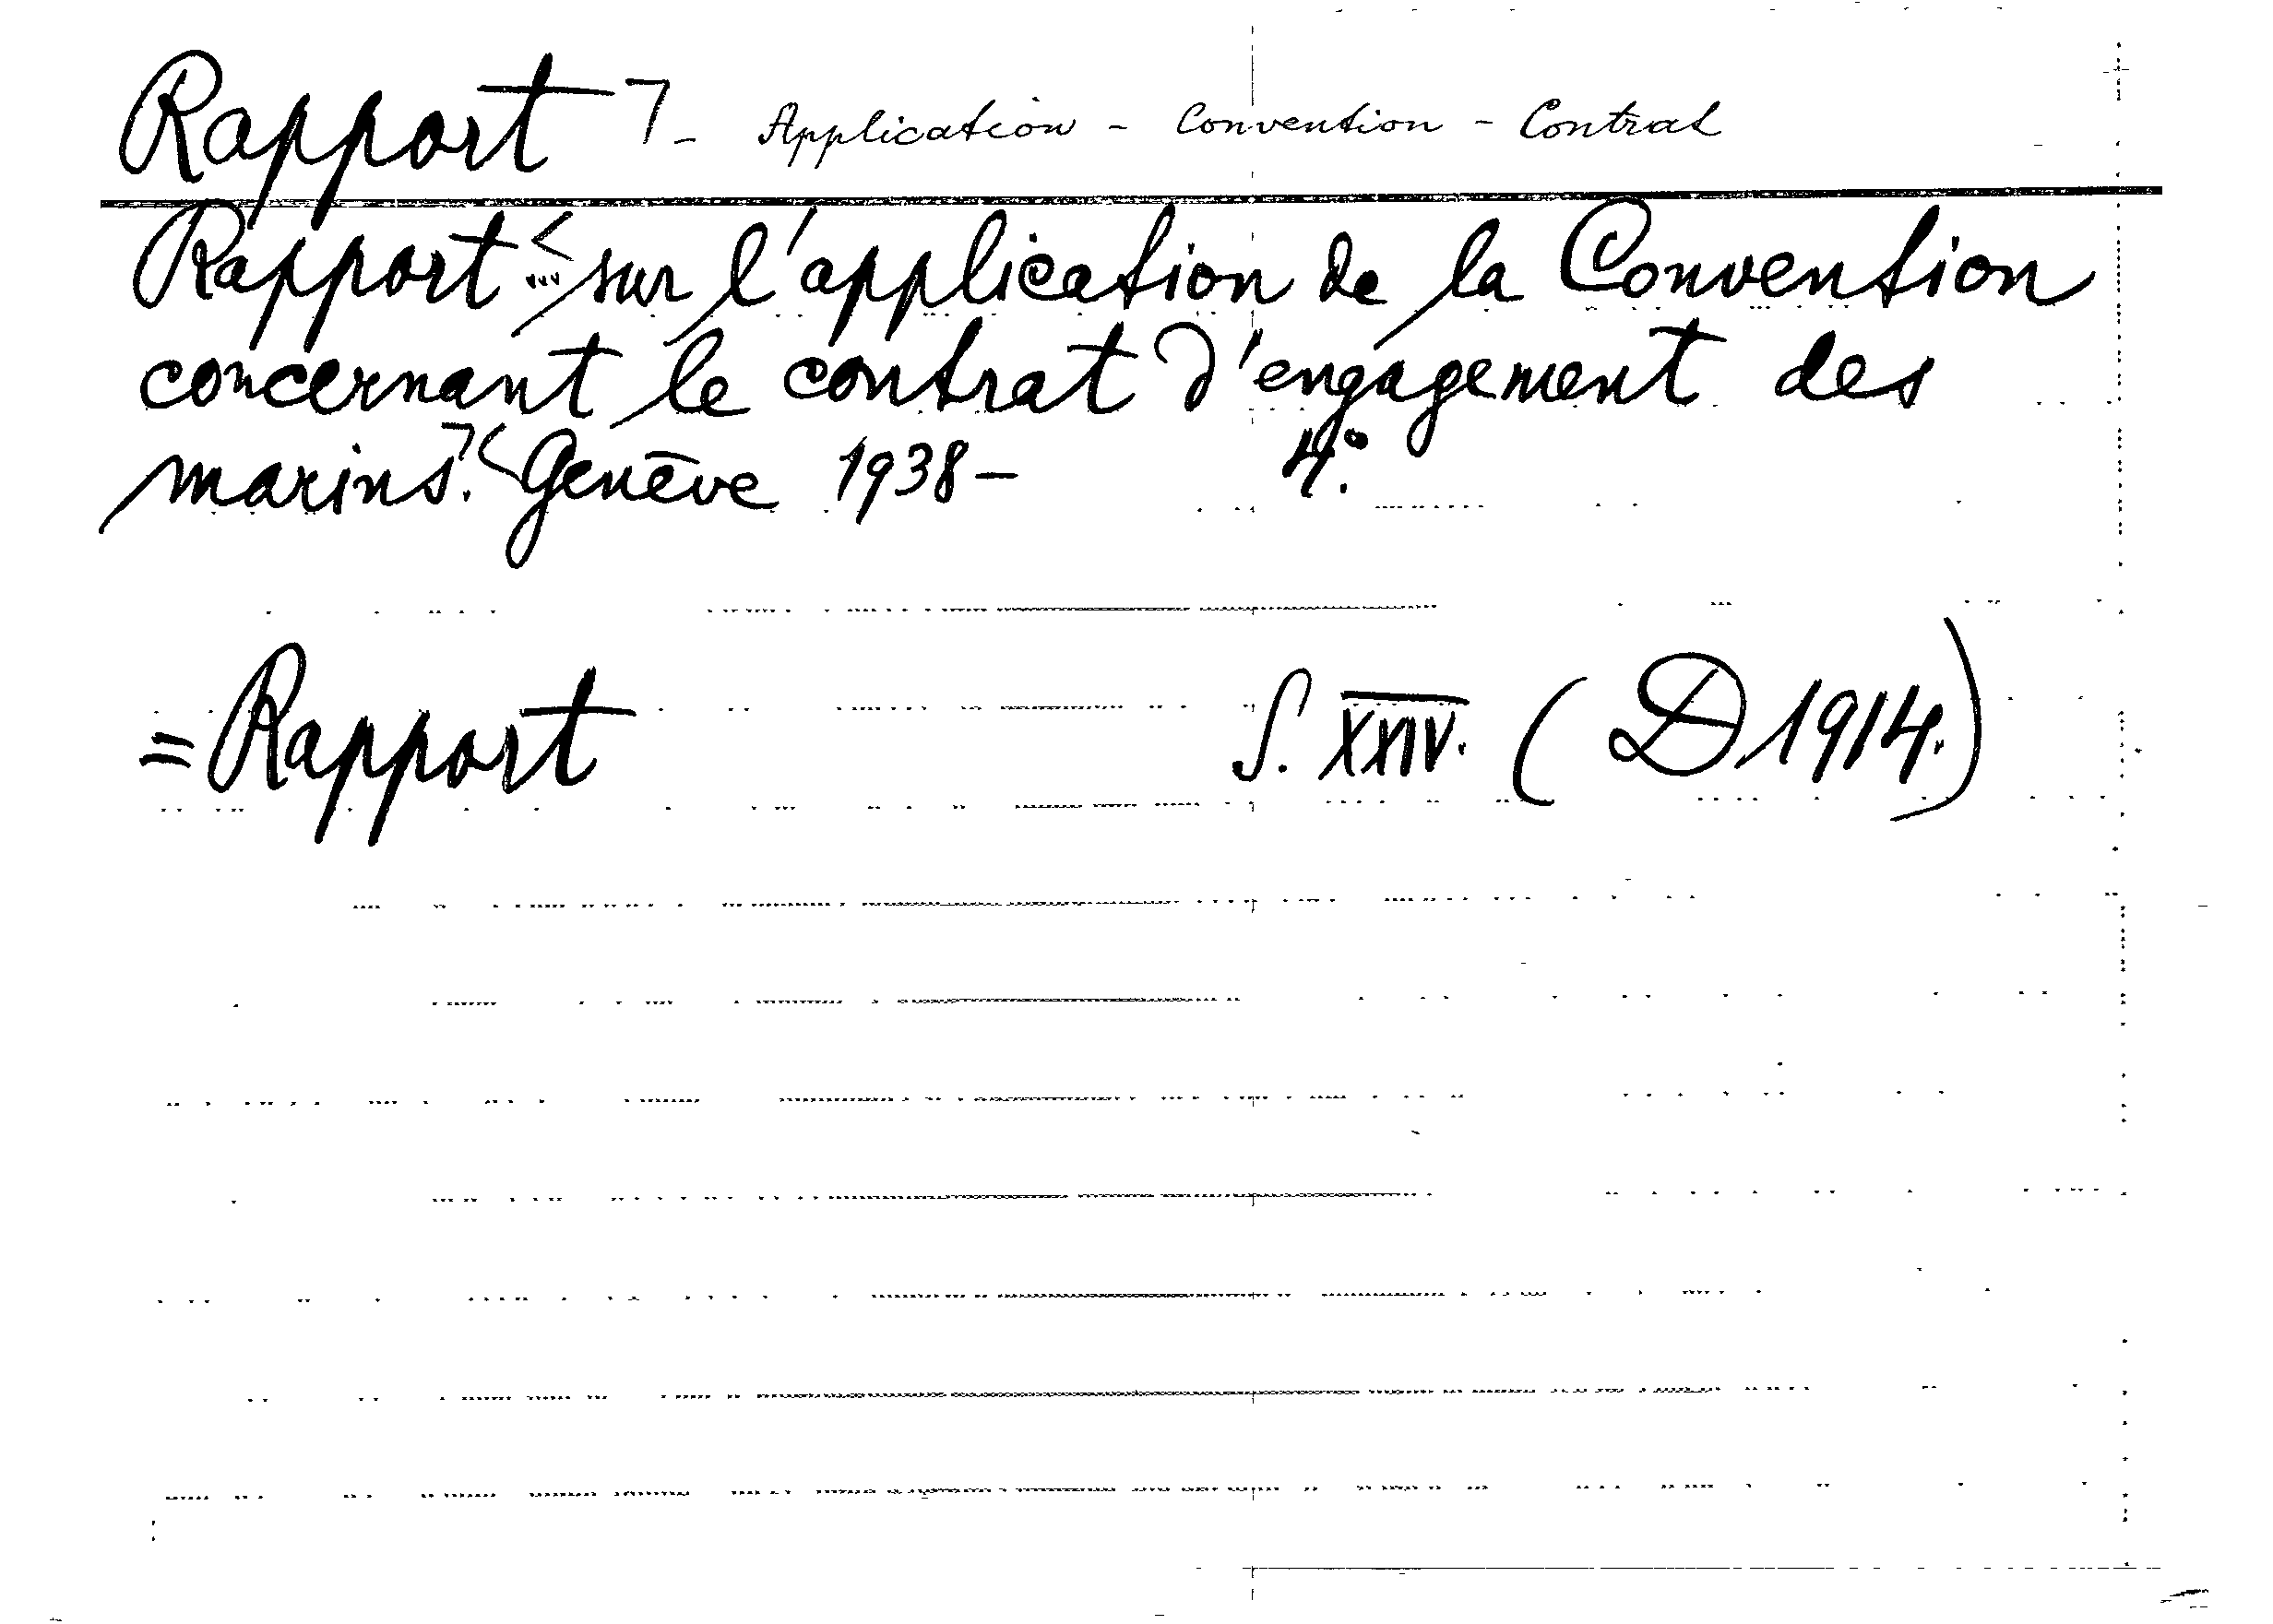 Rapport ⌝ - Application - Convention - Contrat
Rapport < ... sur l'application de la Convention
concernant le contrat d'engagement des
marins.⌝ < Genève 1938 — 4°.
= Rapport S. XXIV. (D 1914.)